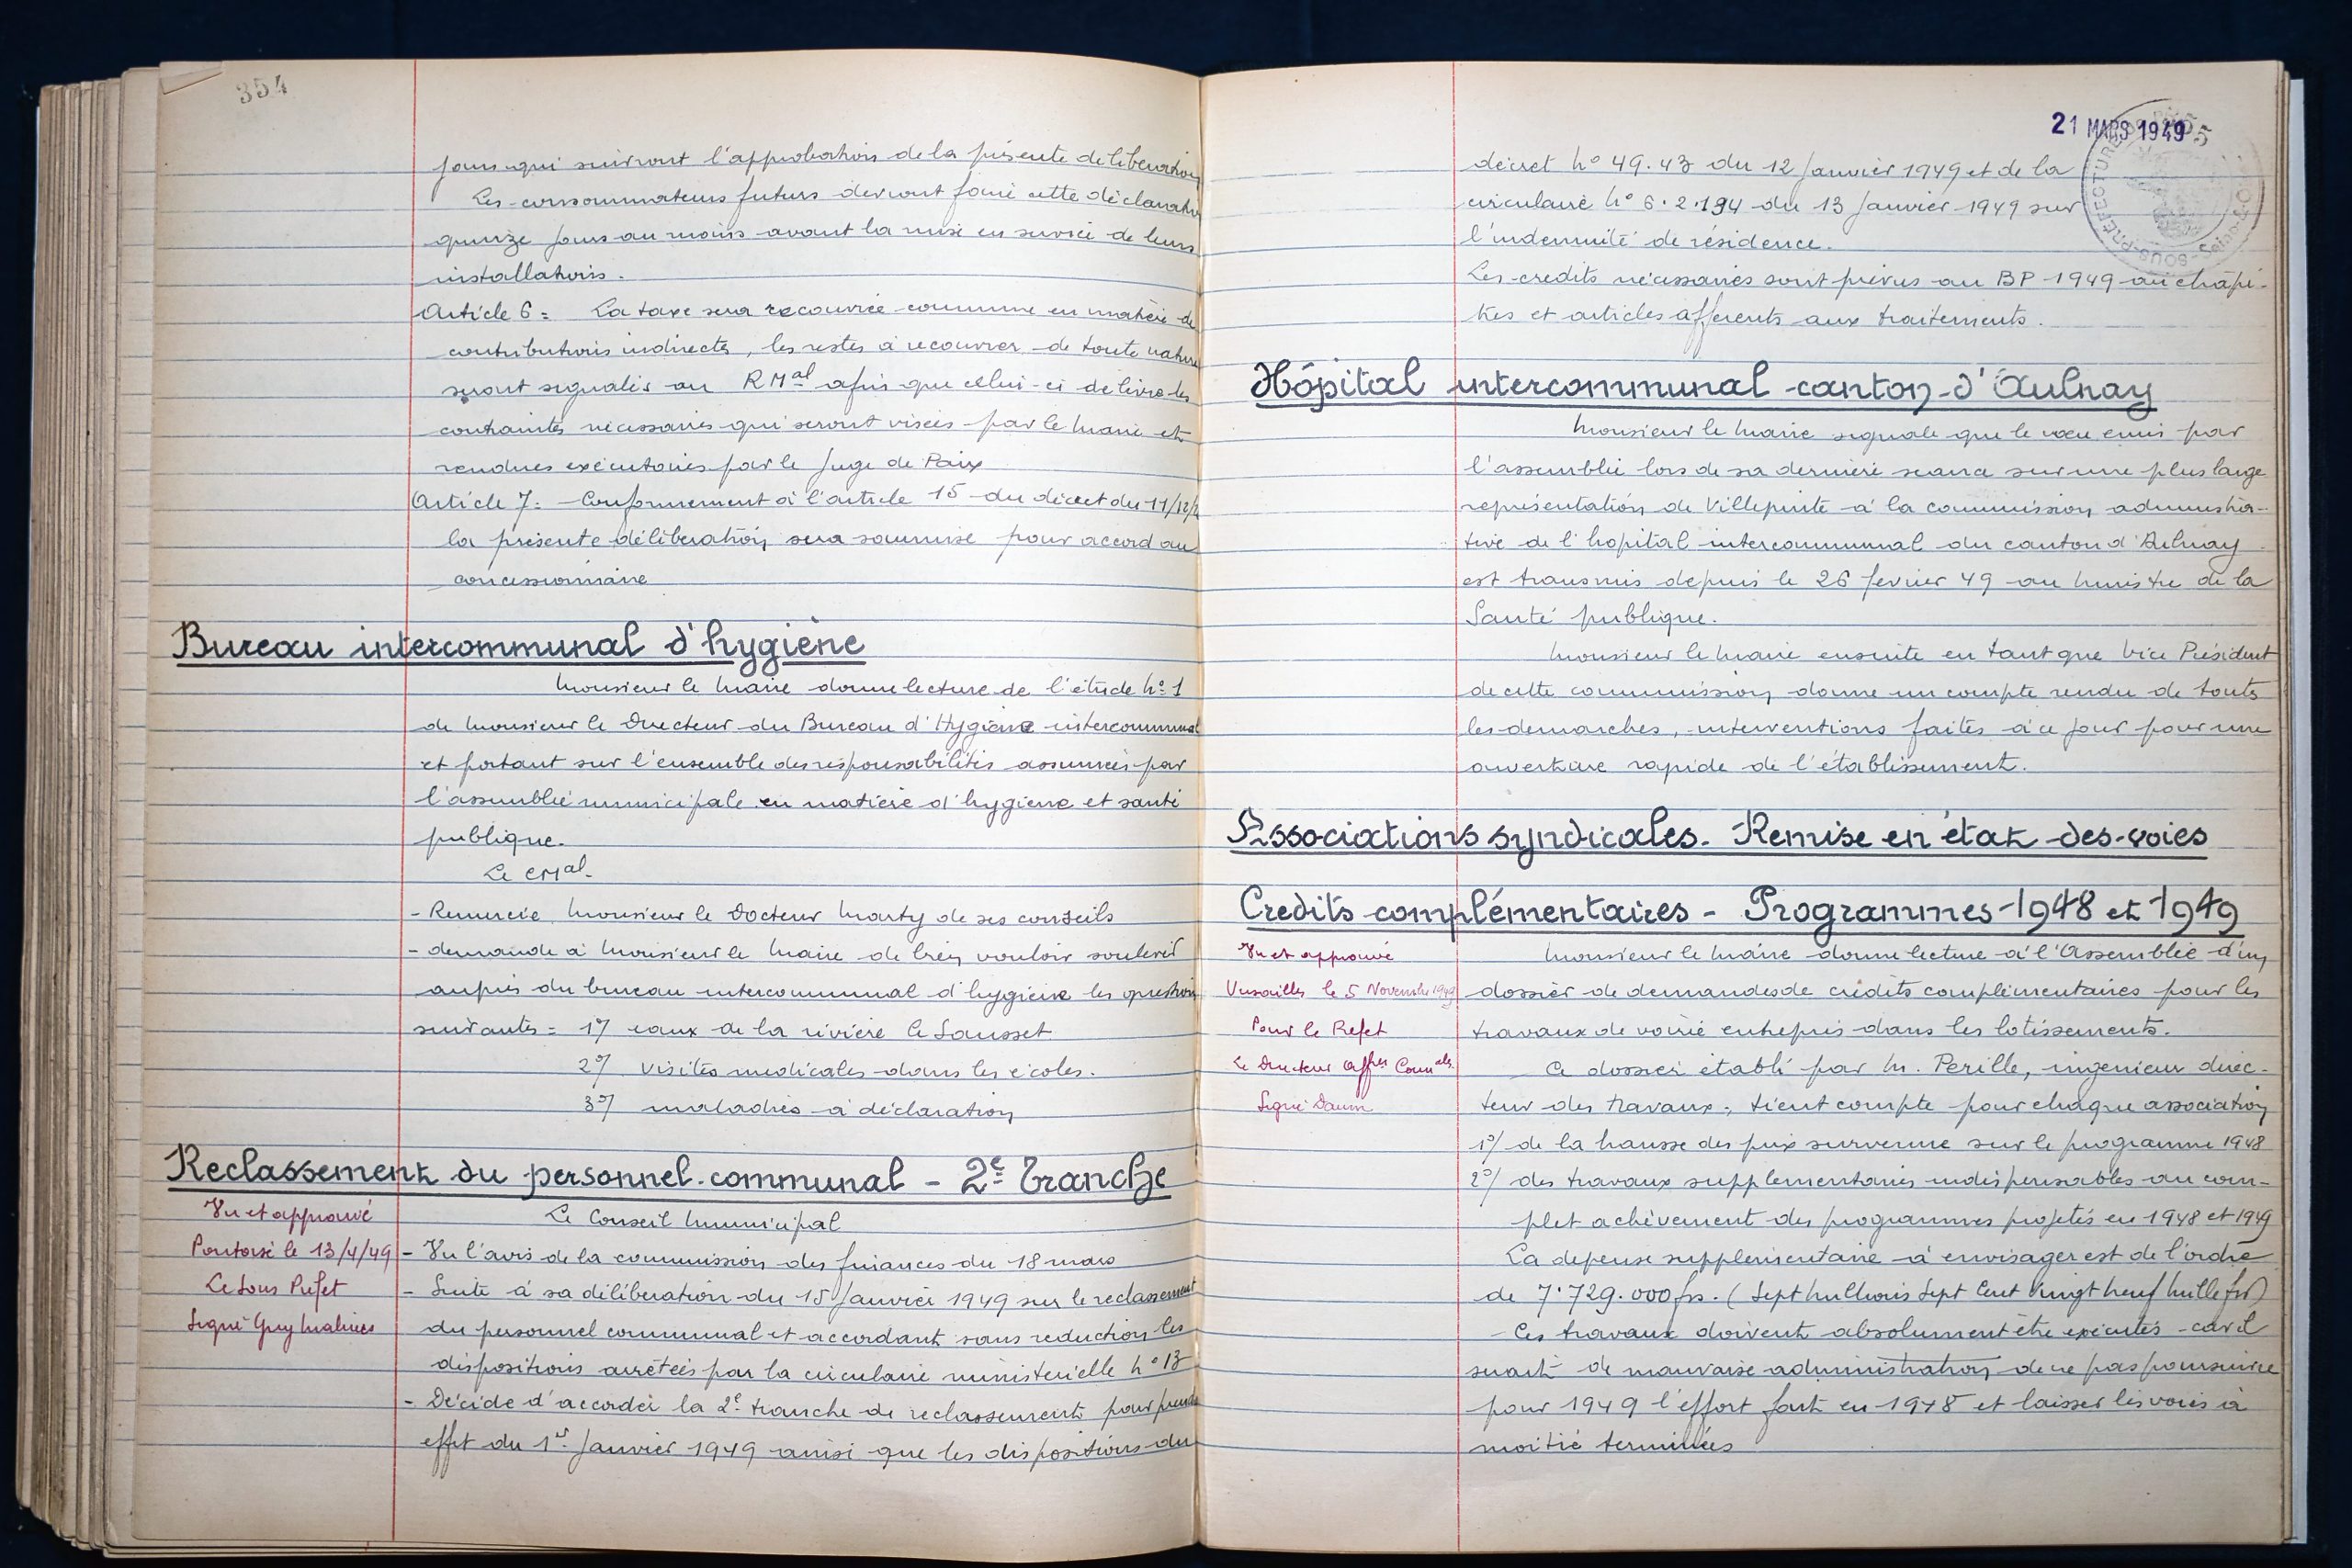 354
jours qui suivront l'approbation de la présente délibération
Les consommateurs futurs devront faire cette déclaration
quinze jours au moins avant la mise en service de leurs
installations.
Article 6 = La taxe sera recouvrée comme en matière de
contributions indirectes, les restes à recouvrer de toute nature
seront signalés au RMal afin que celui-ci délivre les
contraintes nécessaires qui seront visées par le Maire et
rendues exécutoires par le Juge de Paix
Article 7 = Conformément à l'article 15 du décret du 11/12/
la présente délibération sera soumise pour accord au
concessionnaire
Bureau intercommunal d'hygiène
Monsieur le Maire donne lecture de l'étude No 1
de Monsieur le Directeur du Bureau d'Hygiène intercommunal
et portant sur l'ensemble des responsabilités assumées par
l'assemblée municipale en matière d'hygiène et santé
publique.
Le CMal.
- Remercie Monsieur le Docteur Marty de ses conseils
- demande à Monsieur le Maire de bien vouloir soulever
auprès du bureau intercommunal d'hygiène les questions
suivantes = 1°/ eaux de la rivière le Sausset
2°/ visites médicales dans les écoles.
3°/ maladies à déclaration
Reclassement du personnel communal - 2e Tranche
Vu et approuvé
Pontoise le 13/4/49
Le Sous Préfet
Signé Guy
Le Conseil Municipal
- Vu l'avis de la commission des finances du 18 mars
- Suite à sa délibération du 15 Janvier 1949 sur le reclassement
du personnel communal et accordant sans réduction les
dispositions arrêtées par la circulaire ministérielle No 13
- Décide d'accorder la 2e tranche de reclassement pour prendre
effet du 1er Janvier 1949 ainsi que les dispositions du
21 MARS 1949
SOUS-PRÉFECTURE
décret No 49.43 du 12 Janvier 1949 et de la
circulaire No 6.2.194 du 13 Janvier 1949 sur
l'indemnité de résidence.
Les crédits nécessaires sont prévus au BP 1949 au chapi-
tres et articles afférents aux traitements.
Hôpital intercommunal canton d'Aulnay
Monsieur le Maire signale que le vœu émis par
l'assemblée lors de sa dernière séance sur une plus large
représentation de Villepinte à la commission administra-
tive de l'hopital intercommunal du canton d'Aulnay
est transmis depuis le 26 février 49 au Ministre de la
Santé publique.
Monsieur le Maire ensuite en tant que Vice Président
de cette commission donne un compte rendu de toutes
les démarches, interventions faites à ce jour pour une
ouverture rapide de l'établissement.
Associations syndicales. Remise en état des voies
Crédits complémentaires - Programmes 1948 et 1949
Vu et approuvé
Versailles le 5 Novembre 1949
Pour le Préfet
Le Directeur Affres Comales
Signé Daum
Monsieur le Maire donne lecture à l'Assemblée d'un
dossier de demandes de crédits complémentaires pour les
travaux de voirie entrepris dans les lotissements.
Ce dossier établi par M. Perille, ingénieur direc-
teur des travaux, tient compte pour chaque association
1°/ de la hausse des prix survenue sur le programme 1948
2°/ des travaux supplémentaires indispensables au com-
plet achèvement des programmes projetés en 1948 et 1949
La dépense supplémentaire à envisager est de l'ordre
de 7.729.000 frs. (Sept Millions Sept Cent Vingt Neuf Mille frs)
Ces travaux doivent absolument être exécutés car il
serait de mauvaise administration de ne pas poursuivre
pour 1949 l'effort fait en 1948 et laisser les voies à
moitié terminées